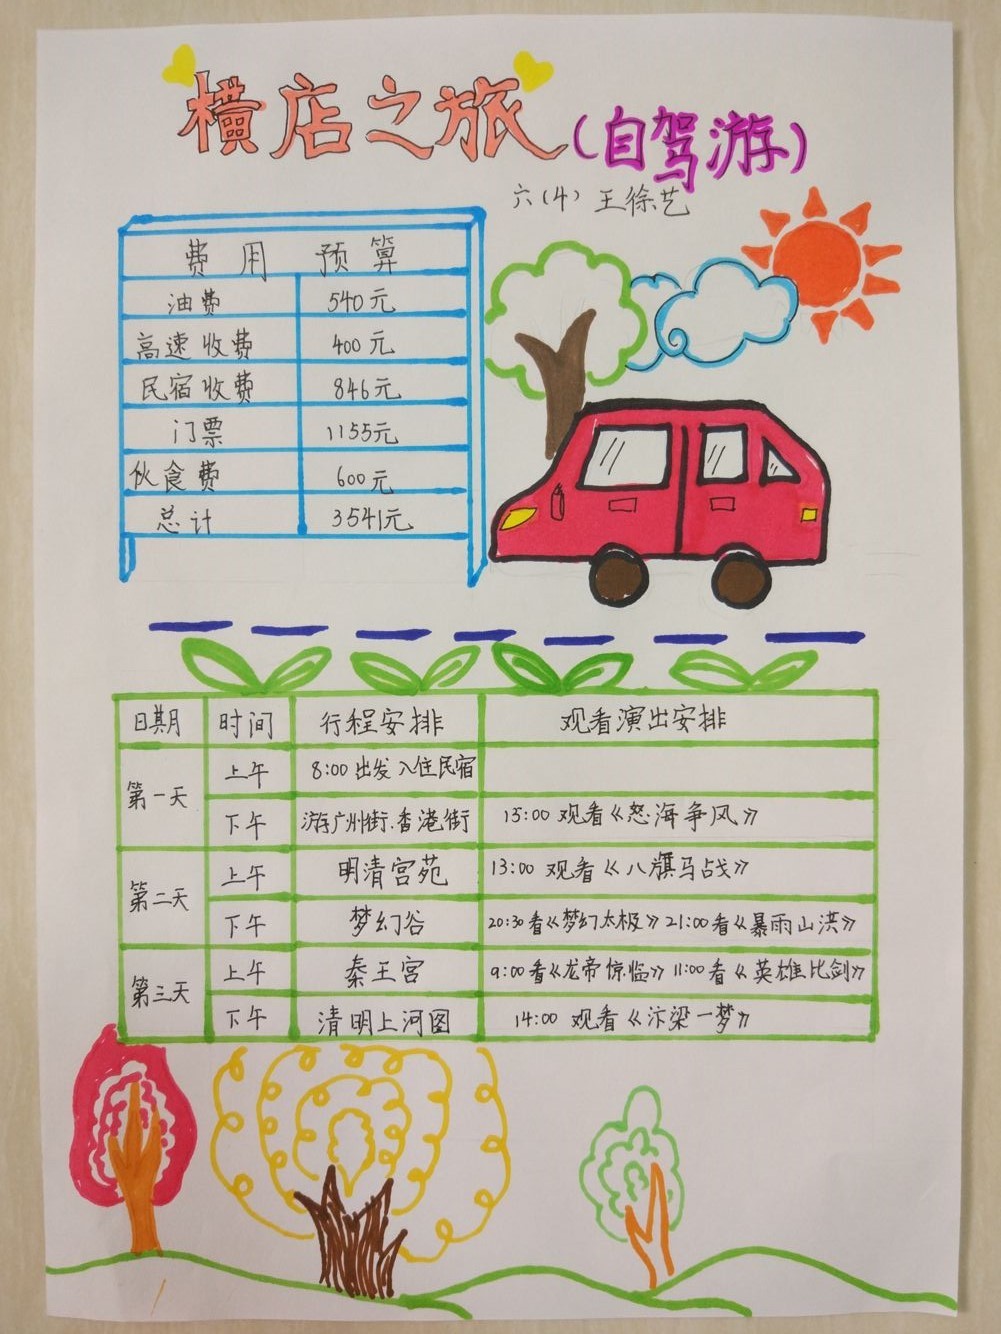 横店之旅(自驾游)
六(4) 王徐艺
费用 预算
油费 540元
高速收费 400元
民宿收费 846元
门票 1155元
伙食费 600元
总计 3541元
日期 时间 行程安排 观看演出安排
第一天 上午 8:00出发入住民宿
下午 游广州街.香港街 15:00 观看《怒海争风》
第二天 上午 明清宫苑 13:00 观看《八旗马战》
下午 梦幻谷 20:30看《梦幻太极》21:00看《暴雨山洪》
第三天 上午 秦王宫 9:00看《龙帝惊临》11:00看《英雄比剑》
下午 清明上河图 14:00 观看《汴梁一梦》